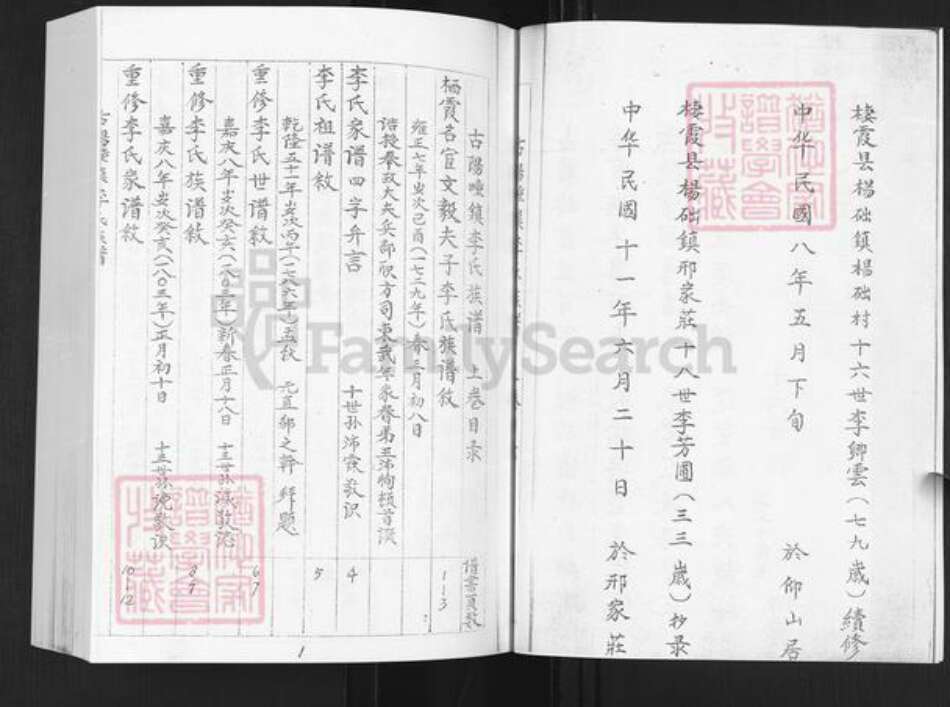 棲霞县楊础鎮楊础村十六世李卿雲（七九歲）續修
中华民國八年五月下旬 於仰山居
棲霞县楊础鎮邢家莊十八世李芳圃（三三歲）抄录
中华民國十一年六月二十日 於邢家莊
古陽疃鎮李氏族谱 上卷目录
谱书頁数
栖霞名宦文毅夫子李氏族谱敘 1-3
雍正七年岁次己酉（一七二九年）春三月初八日
诰授奉政大夫兵部职方司東武年家眷弟王沛恂頓首
李氏家谱四字弁言 十世孙沛霖敬识 4
李氏祖谱敘 5
乾隆五十一年岁次丙午（一七八六年）孟秋 元直郝之幹 拜题
重修李氏世谱敘 6-7
嘉庆八年岁次癸亥（一八〇三年）新春正月十八日 十三世孙 敬
重修李氏族谱敘 8-9
嘉庆八年岁次癸亥（一八〇三年）正月初十日 十三世孙 敬识
重修李氏家谱敘 10-12
1
FamilySearch